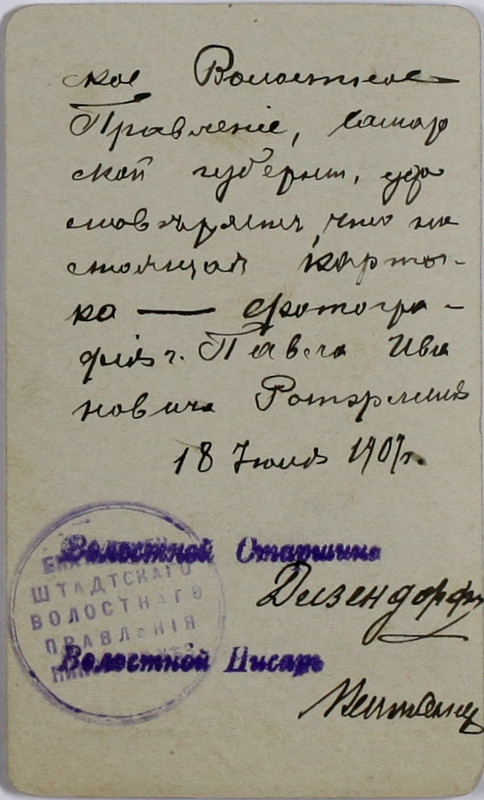 ское Волостное
Правленіе, Самар
ской губерніи, удо
стовѣряетъ, что на
стоящая карточ-
ка — фотогра-
фія г. Павла Ива
новича Ротэрмеля
18 Июля 1907 г.
Волостной Старшина
Дизендорфъ
Волостной Писарь
ШТАДТСКАГО
ВОЛОСТНОГО
ПРАВЛЕНІЯ